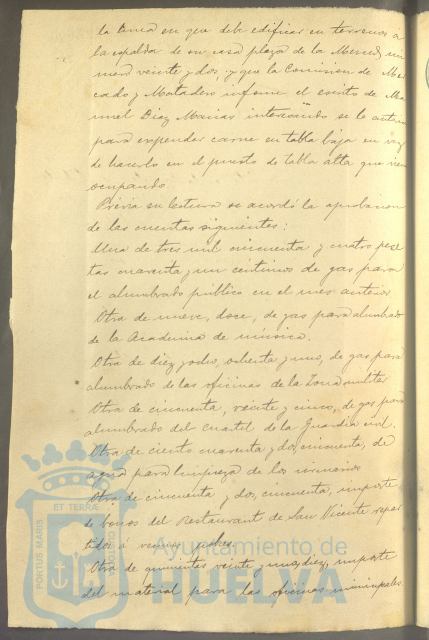 la línea en que debe edificar en terrenos a
la espalda de su casa plaza de la Merced nu
mero veinte y dos, y que la Comision de Mer
cado y Matadero informe el escrito de Ma
nuel Diaz Macias interesando se le autorice
para expender carne en tabla baja en vez
de hacerlo en el puesto de tabla alta que viene
ocupando
Prévia su lectura se acordó la aprobacion
de las cuentas siguientes:
Una de tres mil cincuenta y cuatro pese
tas cuarenta y un centimos de gas para
el alumbrado público en el mes anterior
Otra de nueve, doce, de gas para alumbrado
de la Academia de música.
Otra de diez y ocho, ochenta y uno, de gas para
alumbrado de las oficinas de la Zona militar
Otra de cincuenta, veinte y cinco, de gas para
alumbrado del cuartel de la Guardia civil.
Otra de ciento cuarenta y dos, cincuenta, de
agua para limpieza de los urinarios
Otra de cincuenta y dos, cincuenta, importe
de bonos del Restaurant de San Vicente repar
tidos á vecinos pobres.
Otra de quinientas veinte y una, diez, importe
del material para las oficinas municipales
PORTUS MARIS
ET TERRÆ
Ayuntamiento de
HUELVA